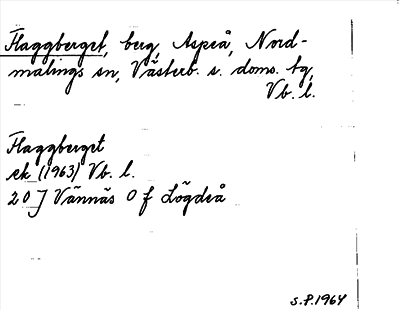 Flaggberget, berg, Aspeå, Nord-
malings sn, Västerb. s. doms. tg,
Vb. l.
Flaggberget
ek (1963) Vb. l.
20 J Vännäs O f Lögdeå
S.P.1964